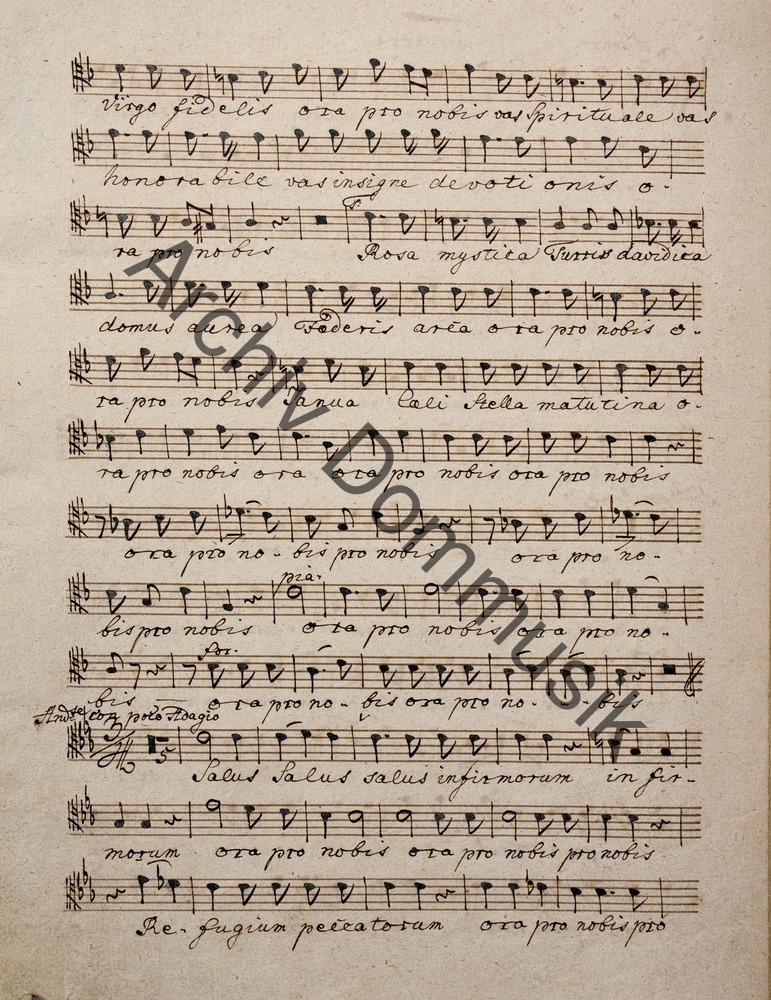 Virgo fidelis ora pro nobis vas Spirituale vas
honorabile vas insigne devotionis o-
ra pro nobis Rosa mystica Turris davidica
domus aurea Foderis arca ora pro nobis o-
ra pro nobis Janua Cæli Stella matutina o-
ra pro nobis ora ora pro nobis ora pro nobis
ora pro no- bis pro nobis ora pro no-
pia:
bis pro nobis ora pro nobis ora pro no-
for:
bis ora pro no- bis ora pro no- bis
poco Adagio
Salus Salus salus infirmorum in fir-
morum ora pro nobis ora pro nobis pro nobis
Re- fugium peccatorum ora pro nobis pro
Archiv Dommusik